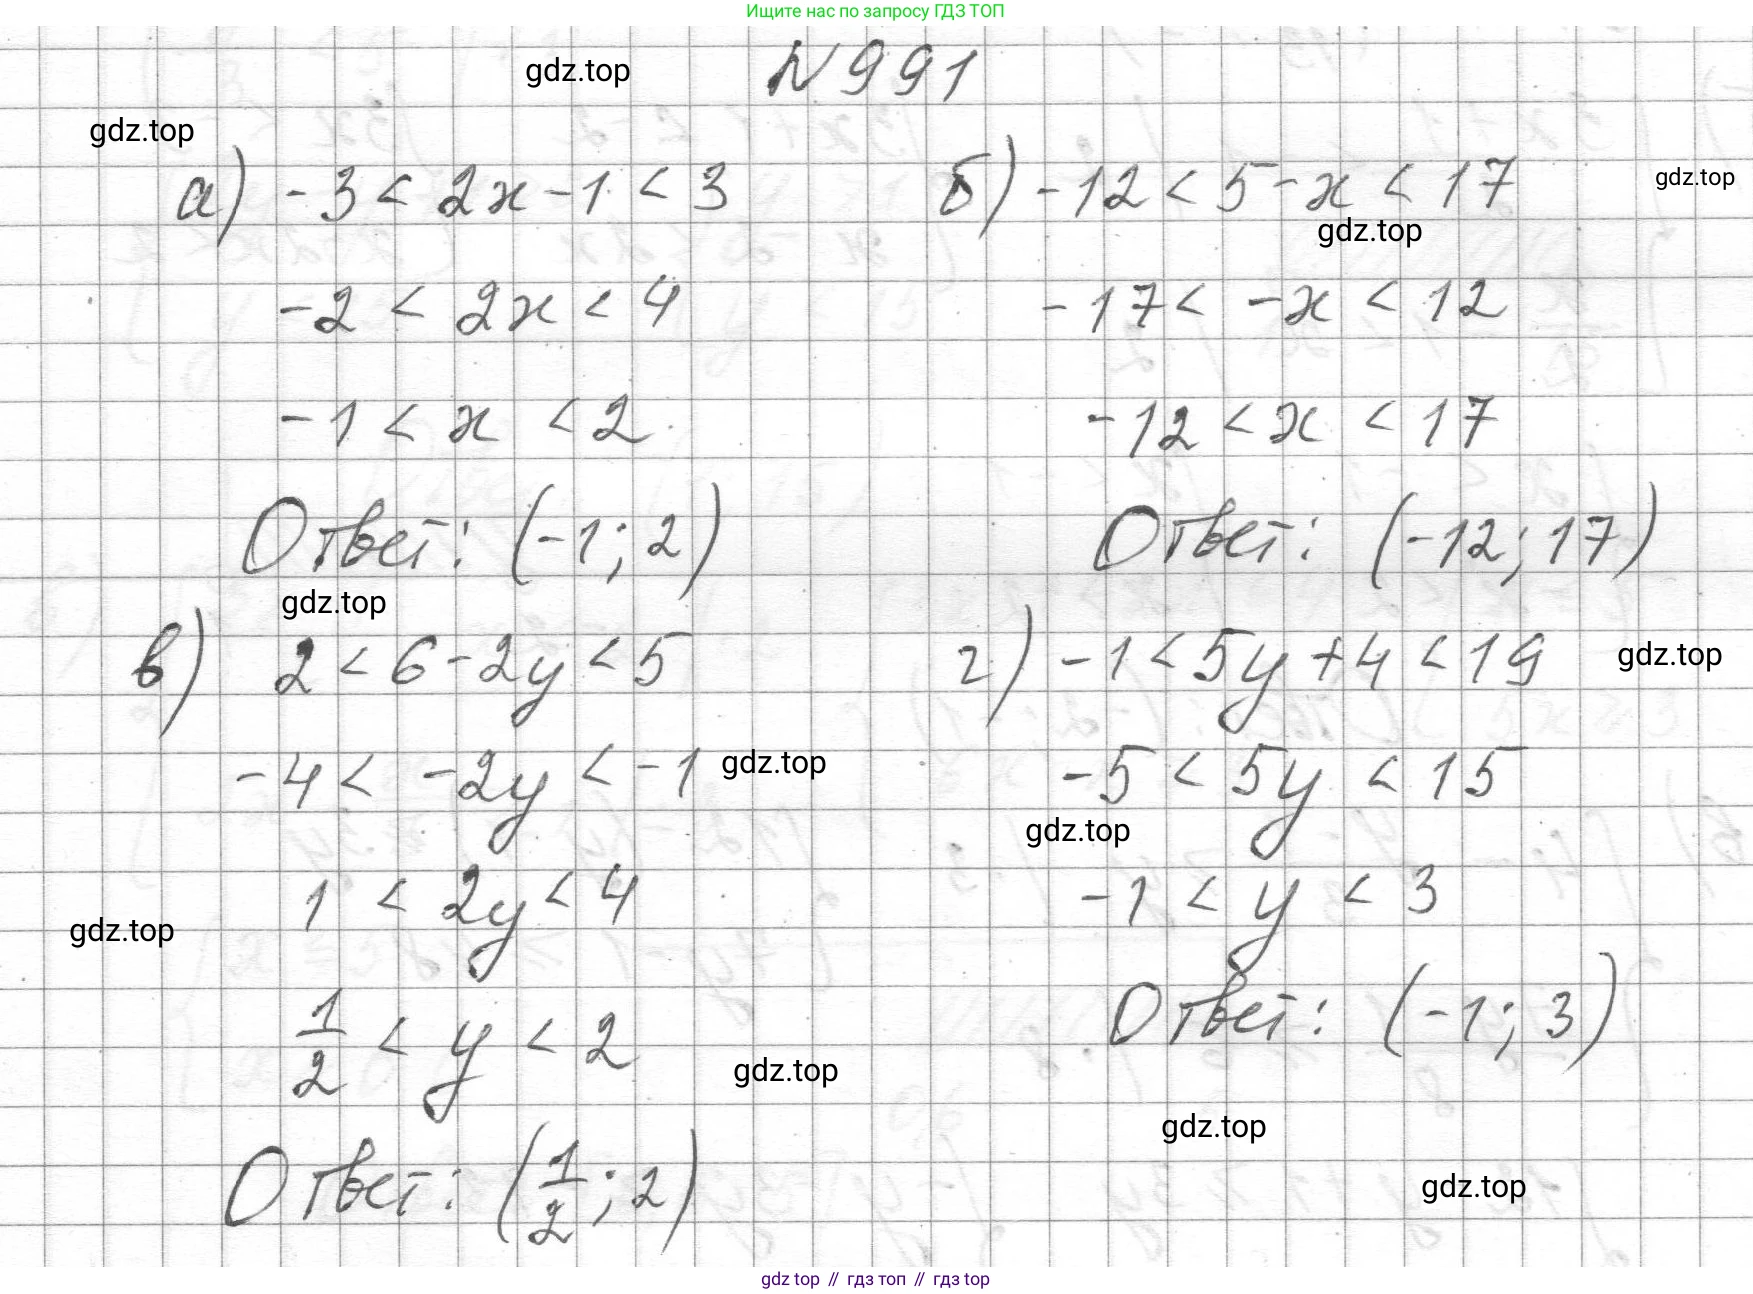 Ищите нас по запросу ГДЗ ТОП
N 991
gdz.top
gdz.top
а) -3 < 2x - 1 < 3
-2 < 2x < 4
-1 < x < 2
Ответ: (-1; 2)
б) -12 < 5 - x < 17
gdz.top
gdz.top
-17 < -x < 12
-12 < x < 17
Ответ: (-12; 17)
gdz.top
в) 2 < 6 - 2y < 5
-4 < -2y < -1
gdz.top
1 < 2y < 4
gdz.top
1/2 < y < 2
gdz.top
Ответ: (1/2; 2)
г) -1 < 5y + 4 < 19
gdz.top
-5 < 5y < 15
gdz.top
-1 < y < 3
Ответ: (-1; 3)
gdz.top
gdz.top
gdz top // гдз топ // гдз top